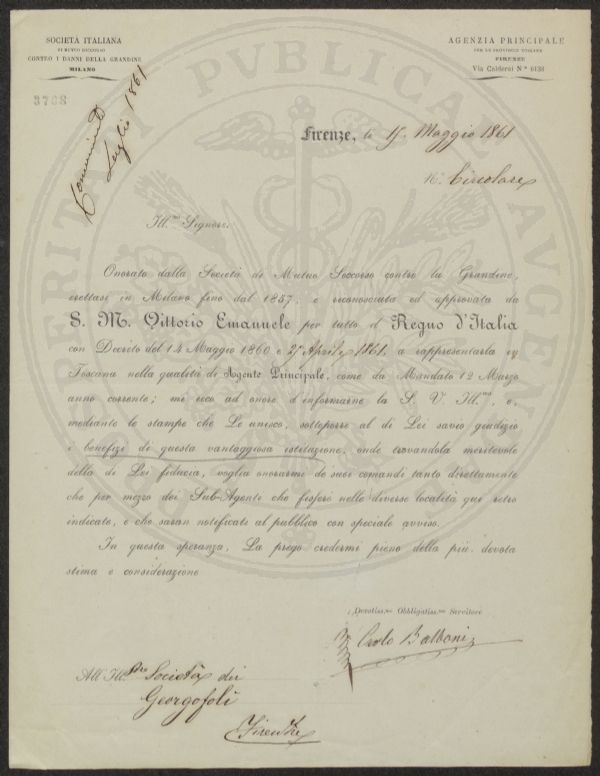 SOCIETÀ ITALIANA
DI MUTUO SOCCORSO
CONTRO I DANNI DELLA GRANDINE
MILANO
AGENZIA PRINCIPALE
PER LE PROVINCIE TOSCANE
FIRENZE
Via Calderei N° 6138
3708
Luglio 1861
Firenze, li 15 Maggio 1861
N.° Circolare
Ill.mo Signore.
Onorato dalla Società di Mutuo Soccorso contro la Grandine,
erettasi in Milano fino dal 1857, e riconosciuta ed approvata da
S. M. Vittorio Emanuele per tutto il Regno d'Italia
con Decreto del 14 Maggio 1860 e Aprile 1861. a rappresentarla in
Toscana nella qualità di Agente Principale, come da Mandato 12 Marzo
anno corrente; mi reco ad onore d'informarne la S. V. Ill.ma, e,
mediante le stampe che Le unisco, sottoporre al di Lei savio giudizio
i benefizi di questa vantaggiosa istituzione, onde trovandola meritevole
della di Lei fiducia, voglia onorarmi de suoi comandi tanto direttamente
che per mezzo dei Sub-Agenti che fisserò nelle diverse località qui retro
indicate, e che saran notificati al pubblico con speciale avviso.
In questa speranza, La prego credermi pieno della più devota
stima e considerazione
Devotiss.mo Obbligatiss.mo Servitore
Carlo Balboni
All Ill. Società dei
Georgofoli
Firenze
PUBLICAE